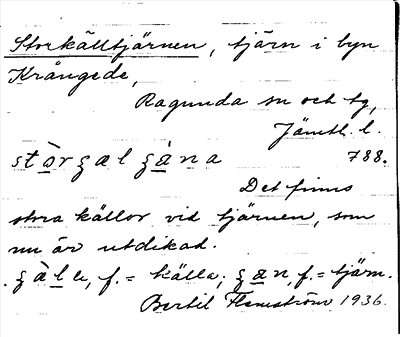 Storkälltjärnen, tjärn i byn
Krångede,
Ragunda sn och tg,
Jämtl. l.
788.
Det finns
stora källor vid tjärnen, som
nu är utdikad.
f. = källa; f. = tjärn.
Bertil Flemström 1936.